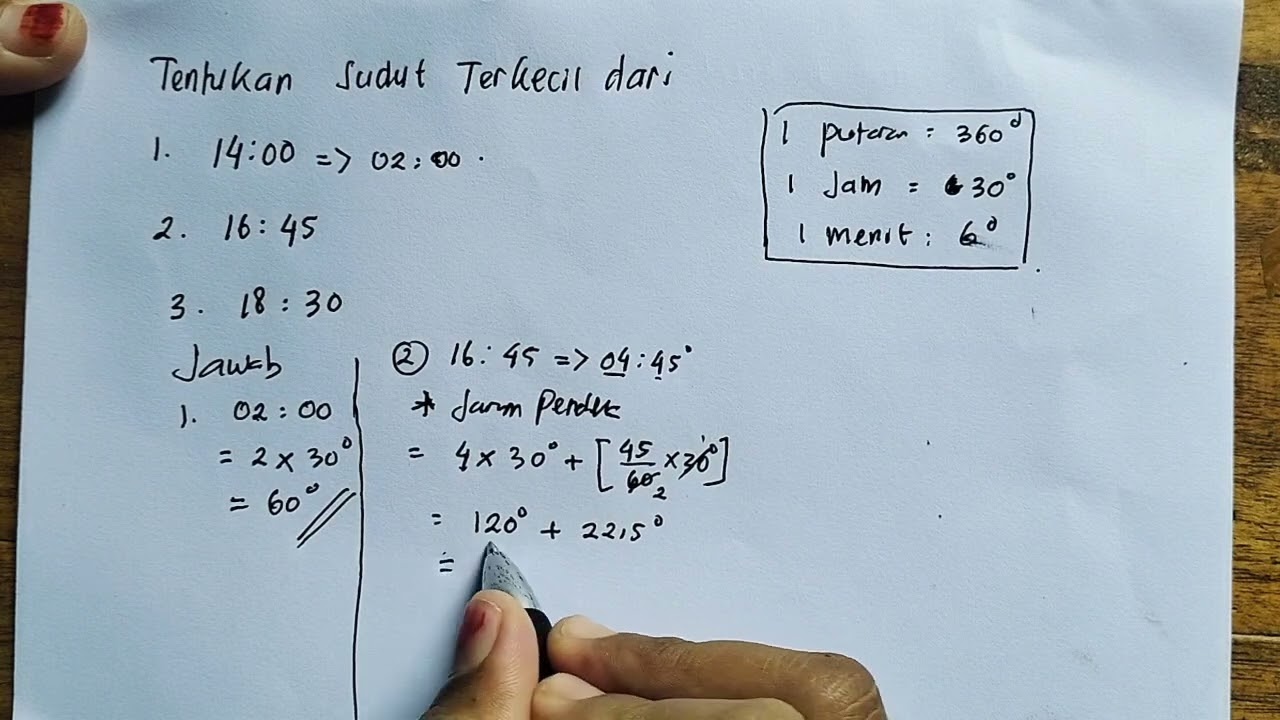 Tentukan Sudut Terkecil dari
1. 14:00 => 02:00
2. 16:45
3. 18:30
1 putaran = 360°
1 Jam = 30°
1 menit : 6°
Jawab
1. 02:00
= 2 x 30°
= 60°
② 16:45 => 04:45°
* Jarum Pendek
= 4 x 30° + [45/60 2 x 30° 1]
= 120° + 22,5°
=